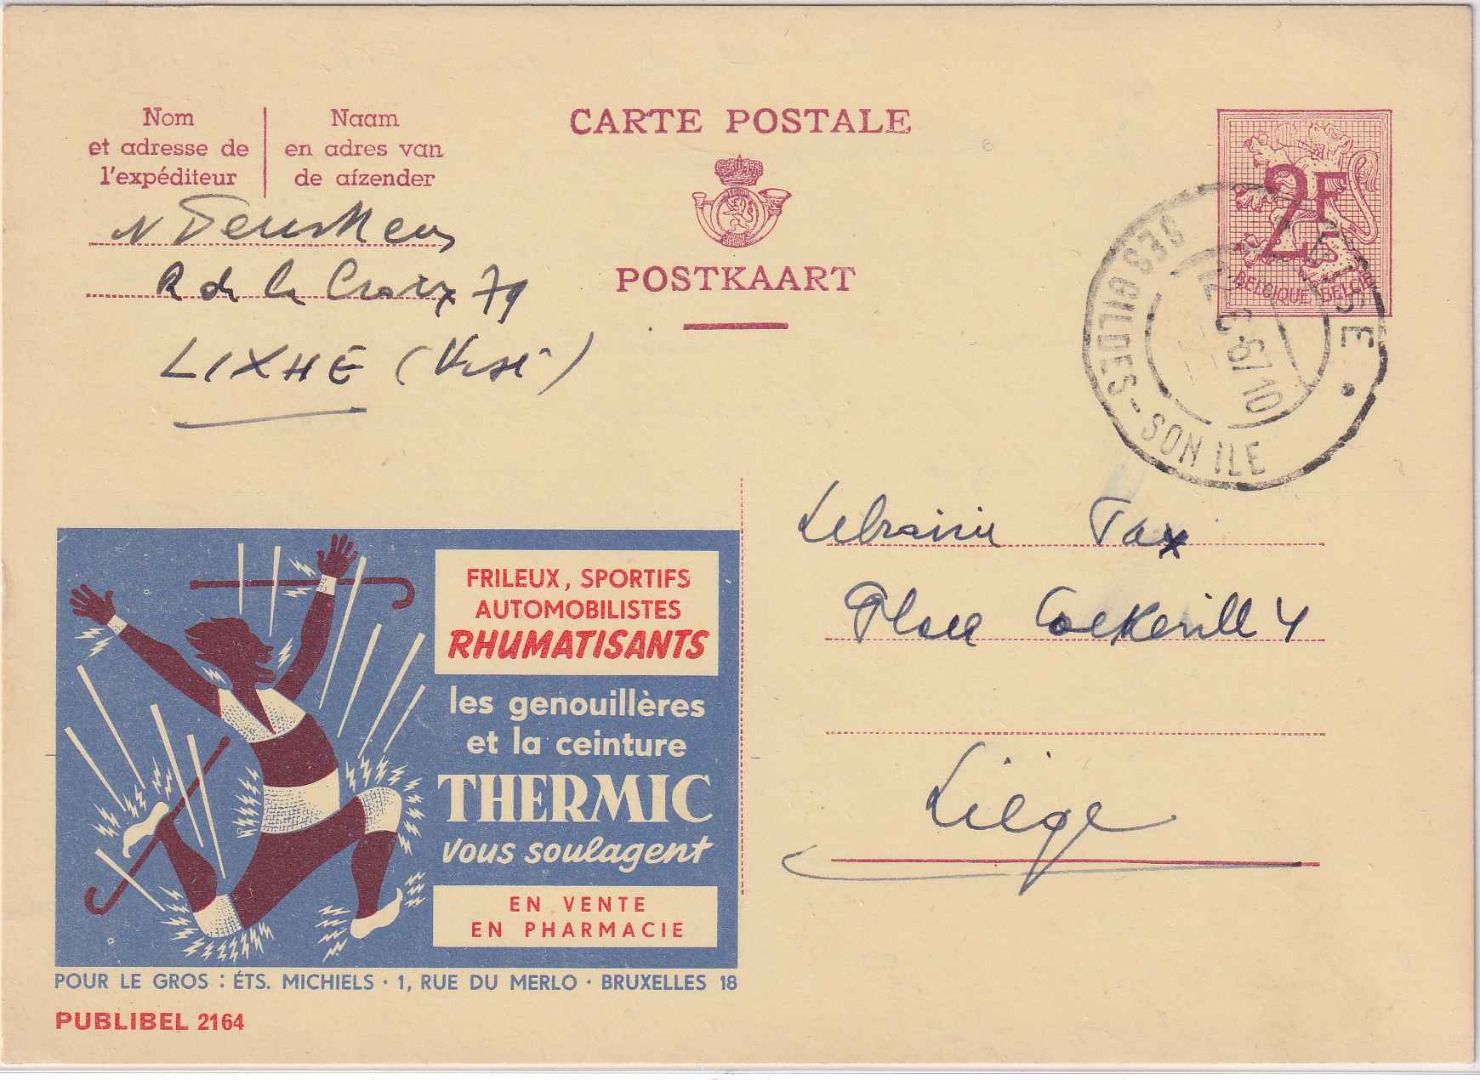 Nom
et adresse de
l'expéditeur
Naam
en adres van
de afzender
CARTE POSTALE
POSTKAART
2F
BELGIQUE BELGIË
SES GILDES - SON ILE
2 6-67 10
R de la Croix 79
LIXHE (Visé)
Librairie Pax
Place Cockerill 4
Liège
FRILEUX, SPORTIFS
AUTOMOBILISTES
RHUMATISANTS
les genouillères
et la ceinture
THERMIC
vous soulagent
EN VENTE
EN PHARMACIE
POUR LE GROS : ÉTS. MICHIELS · 1, RUE DU MERLO · BRUXELLES 18
PUBLIBEL 2164